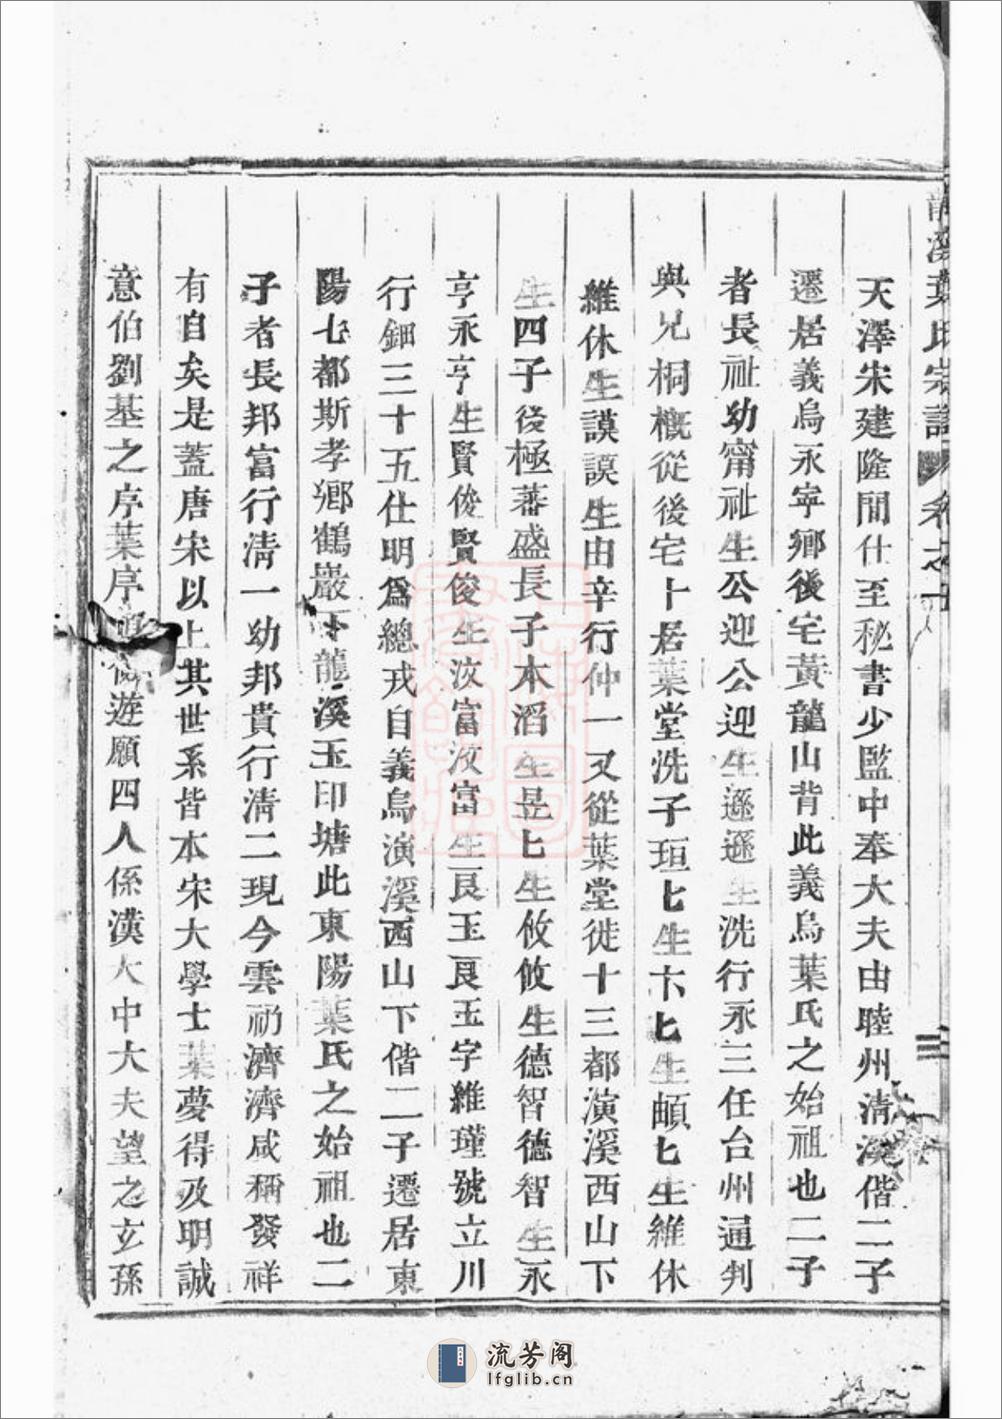 溪葉氏宗譜 卷之
天澤宋建隆間仕至秘書少監中奉大夫由睦州清溪偕二子
遷居義烏永寧鄉後宅黃龍山背此義烏葉氏之始祖也二子
者長祉幼甯祉生公迎公迎生遜遜生洗行永三任台州通判
與兄桐概從後宅卜居葉堂洗子垣匕生卞匕生頔匕生維休
維休生謨謨生由辛行仲一又從葉堂徙十三都演溪西山下
生四子後極蕃盛長子本滔生昱匕生攸攸生德智德智生永
亨永亨生賢俊賢俊生汝富汝富生良玉良玉字維瑾號立川
行鈿三十五仕明爲總戎自義烏演溪西山下偕二子遷居東
陽七都斯孝鄉鶴巖下龍溪玉印塘此東陽葉氏之始祖也二
子者長邦富行淸一幼邦貴行淸二現今雲礽濟濟咸稱發祥
有自矣是蓋唐宋以上其世系皆本宋大學士葉夢得及明誠
意伯劉基之序葉序遊願四人係漢大中大夫望之玄孫
流芳阁
lfglib.cn